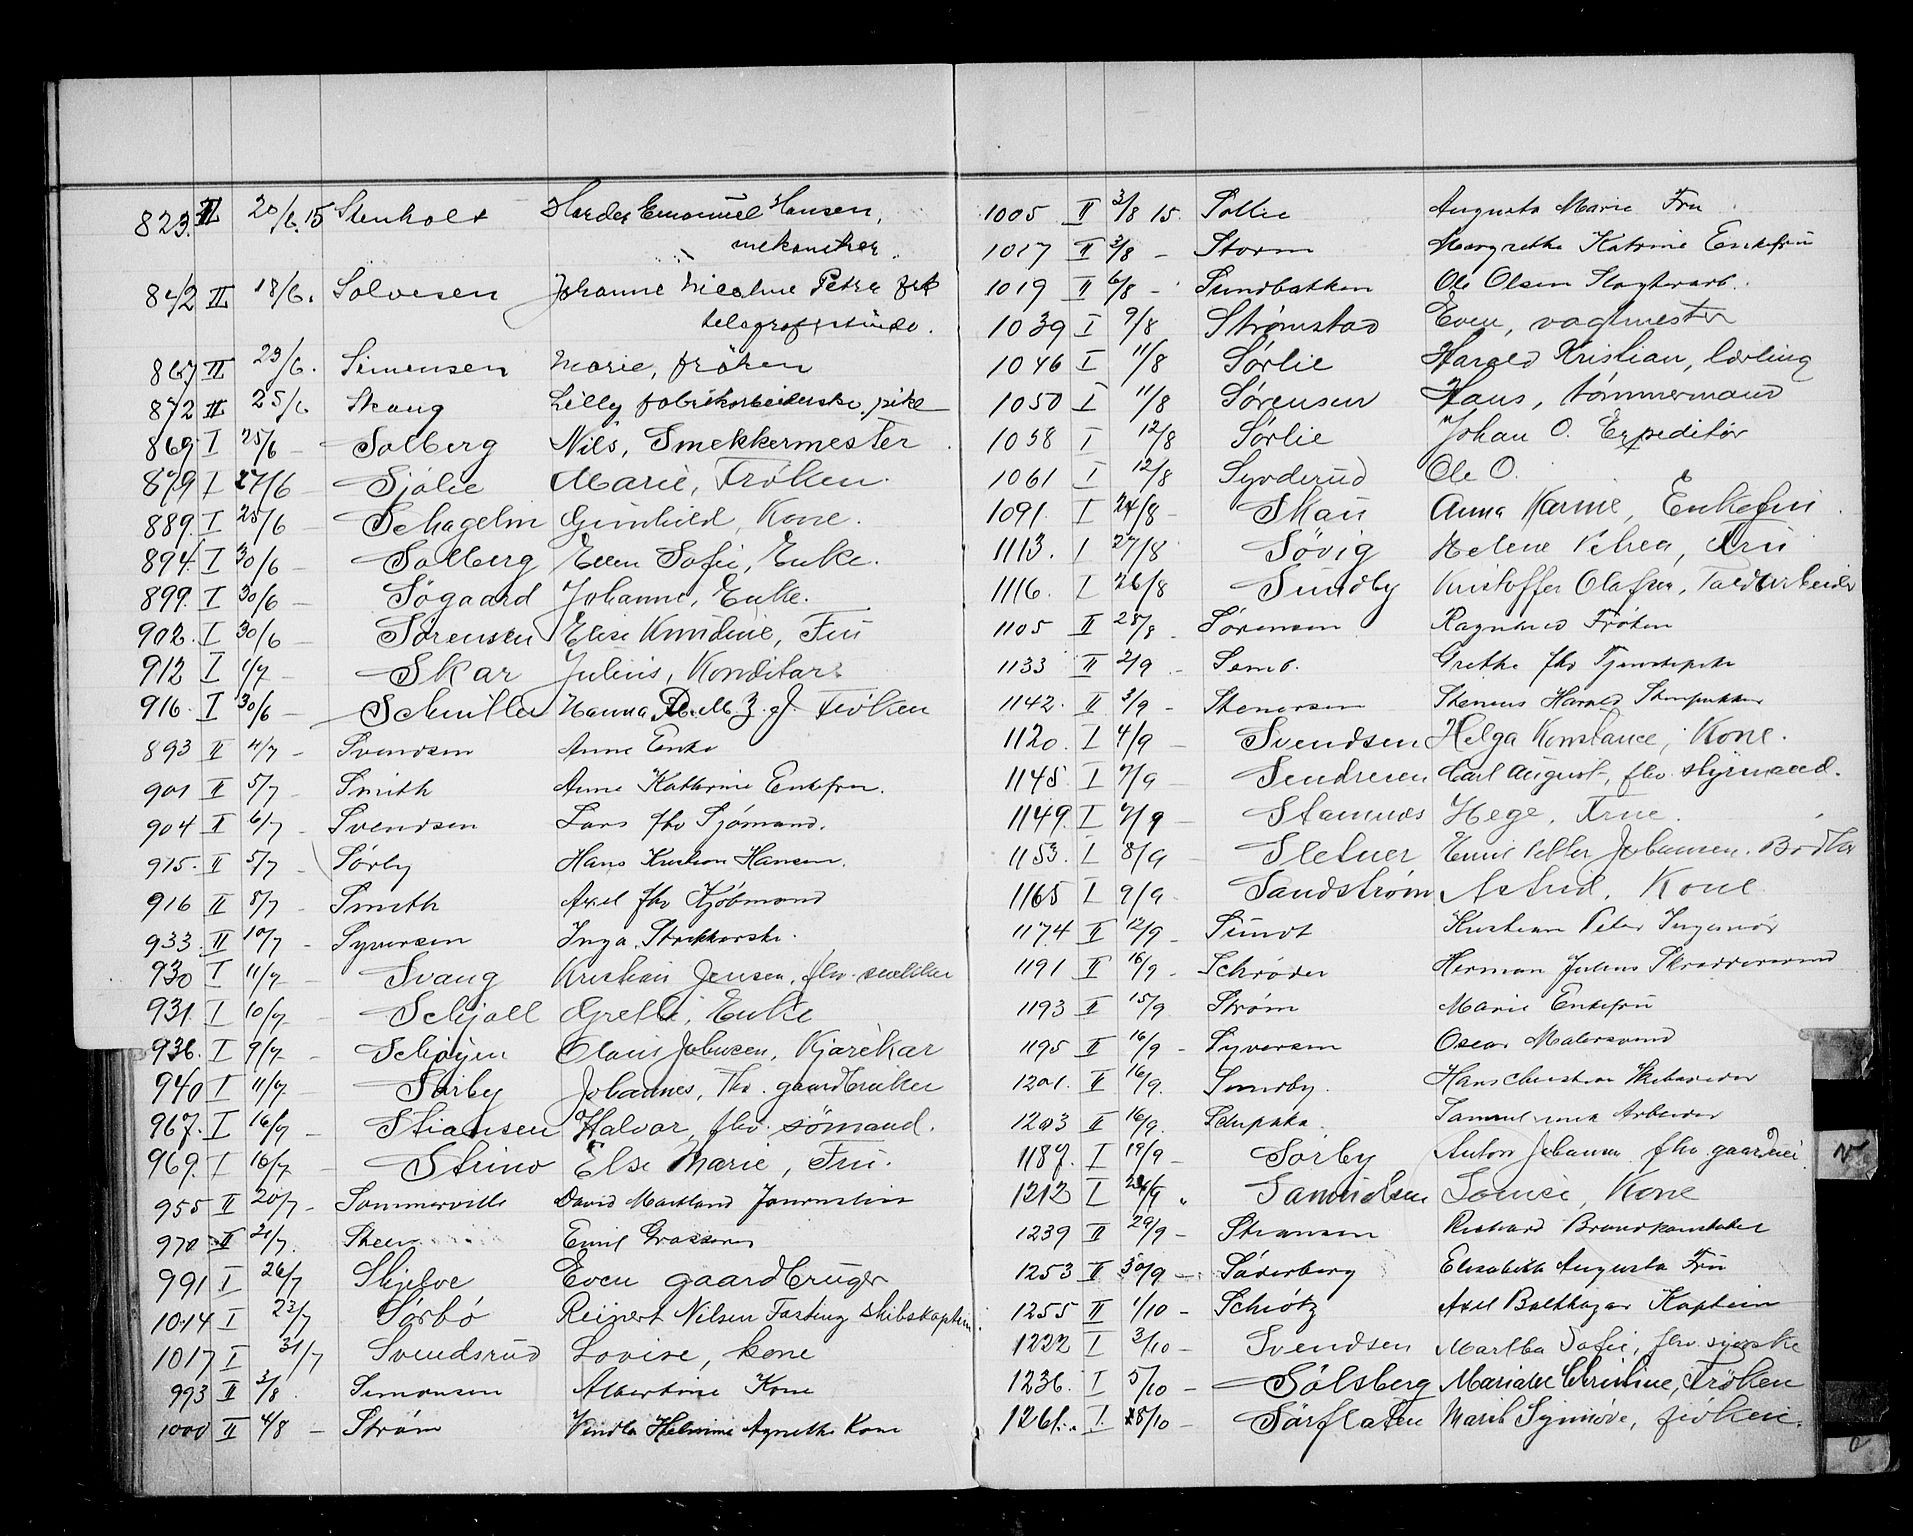 823. II 20/6.15 Stenholt Harder Emanuel Hansen,
mekaniker.
842 II 18/6. Solvesen Johanne Nicoline Petra frk
telegrafistinde.
867 II 23/6. Simensen Marie, frøken
872 II 25/6 Skaug Lilly fabrikarbeiderske, pike
869 I 25/6 Solberg Nils, Snekkermester
879 I 27/6 Sjølie Marie, Frøken.
889. I 25/6 Schagelm Gunhild, Kone.
894. I 30/6 Solberg Ellen Sofie, Enke.
899. I 30/6 Søgaard Johanne, Enke.
902. I 30/6 Sørensen Elise Kundine, Fru
912 I 1/7 Skar Julius, Konditor
916. I 30/6 Schuller Hanna M. Z. J. Frøken
893 II 4/7 - Svendsen Anne Enke
901 II 5/7 - Smith Anne Kathrine Enkefru.
904 II 6/7 - Svendsen Lars fhv Sjømand.
915. II 5/7 - Sørby Hans Kristian Hansen.
916 II 8/7 - Smith Axel fhv Kjøbmand
933. II 10/7 - Syversen Inga, Strikkerske.
930 I 11/7 - Svang Kristian Jensen, fhv snekker
931. I 10/7 - Schjøll Grethe, Enke
936. I 9/7 - Schøyen Olaus Johnsen, Kjørekar
940 I 11/7 - Sørby Johannes, Fhv. gaardbruker
967. I 16/7 - Stiansen Halvor, fhv. sømand.
969. I 16/7 - Strino Else Marie, Fru.
955 II 20/7 - Sommerville David Maitland Journalist
970 II 21/7. Steen Emil Grosserer
991 I 26/7 Skjelve Even gaardbruger
1014 I 23/7 Sørbø Reinert Nilsen Fasting skibskaptein.
1017 I 31/7 Svendsrud Lovise, kone
993 II 2/8. Simonsen Albertine Kone
1000 II 4/8 - Strøm Vendla Helmine Agnethe Kone
1005 II 3/8 15. Sollie Augusta Marie Fru
1017 II 3/8 - Storm Margrethe Katrine Enkefru
1019 II 6/8 - Sundbakken Ole Olsen Slagterarb.
1039 I 9/8 Strømstad Even, vagtmester
1046 I 11/8 Sørlie Harald Kristian, lærling
1050 I 11/8 Sørensen Hans, tømmermand
1058 I 12/8 Sørlie Johan O. Expeditør
1061 I 12/8 Synderud Ole O.
1091. I 24/8 - Skau Anna Karine, Enkefru.
1113. I 27/8 Søvig Helene Petrea, Fru
1116. I 26/8 Sundby Kristoffer Olafsen, Toldarbeider
1105 II 28/8. Sørensen Ragnhild Frøken
1133 II 2/9 - Semb. Grethe fhv Tjenestepike
1142. II 3/9 - Stenersen Stenius Harald Stenpukker
1120. I 4/9 - Svendsen Helga Konstance, Kone.
1145. I 7/9 - Sendresen Carl August, fhv. styrmand.
1149. I 7/9 - Stamnes Hege, Frue.
1153. I 8/9 - Sletner Emil Petter Johansen. Bødker
1165 I 9/9 - Sandstrøm Astrid, Kone
1174 II 12/9 - Sundt Kristian Peter Ingeniør
1191 II 16/9 - Schrøder Herman Julius Skræddersvend
1193 II 15/9 Strøm Marie Enkefru
1195 II 16/9 - Syversen Oscar Malersvend
1201. II 16/9. Sundby Hans Christian
1203 II 16/9. Schipska. Arbeider
1187. I 19/9 - Sørby Anton Johannes fhv gaardeier
1212 I 24/9 " Samuelsen Louise, Kone
1239 II 29/9 - Stransen Richard Brandkonstabel
1253 II 30/9 - Søderberg Elisabeth Augusta Fru
1255 II 1/10 - Schiøtz Axel Balthazar Kaptein
1222 I 3/10 - Svendsen Martha Sofie, fhv. syerske
1236. I 5/10 - Sølsberg Mariane Christine, Frøken
1261. I 28/10 - Sørflaten Marit Synnøve, frøken.
V